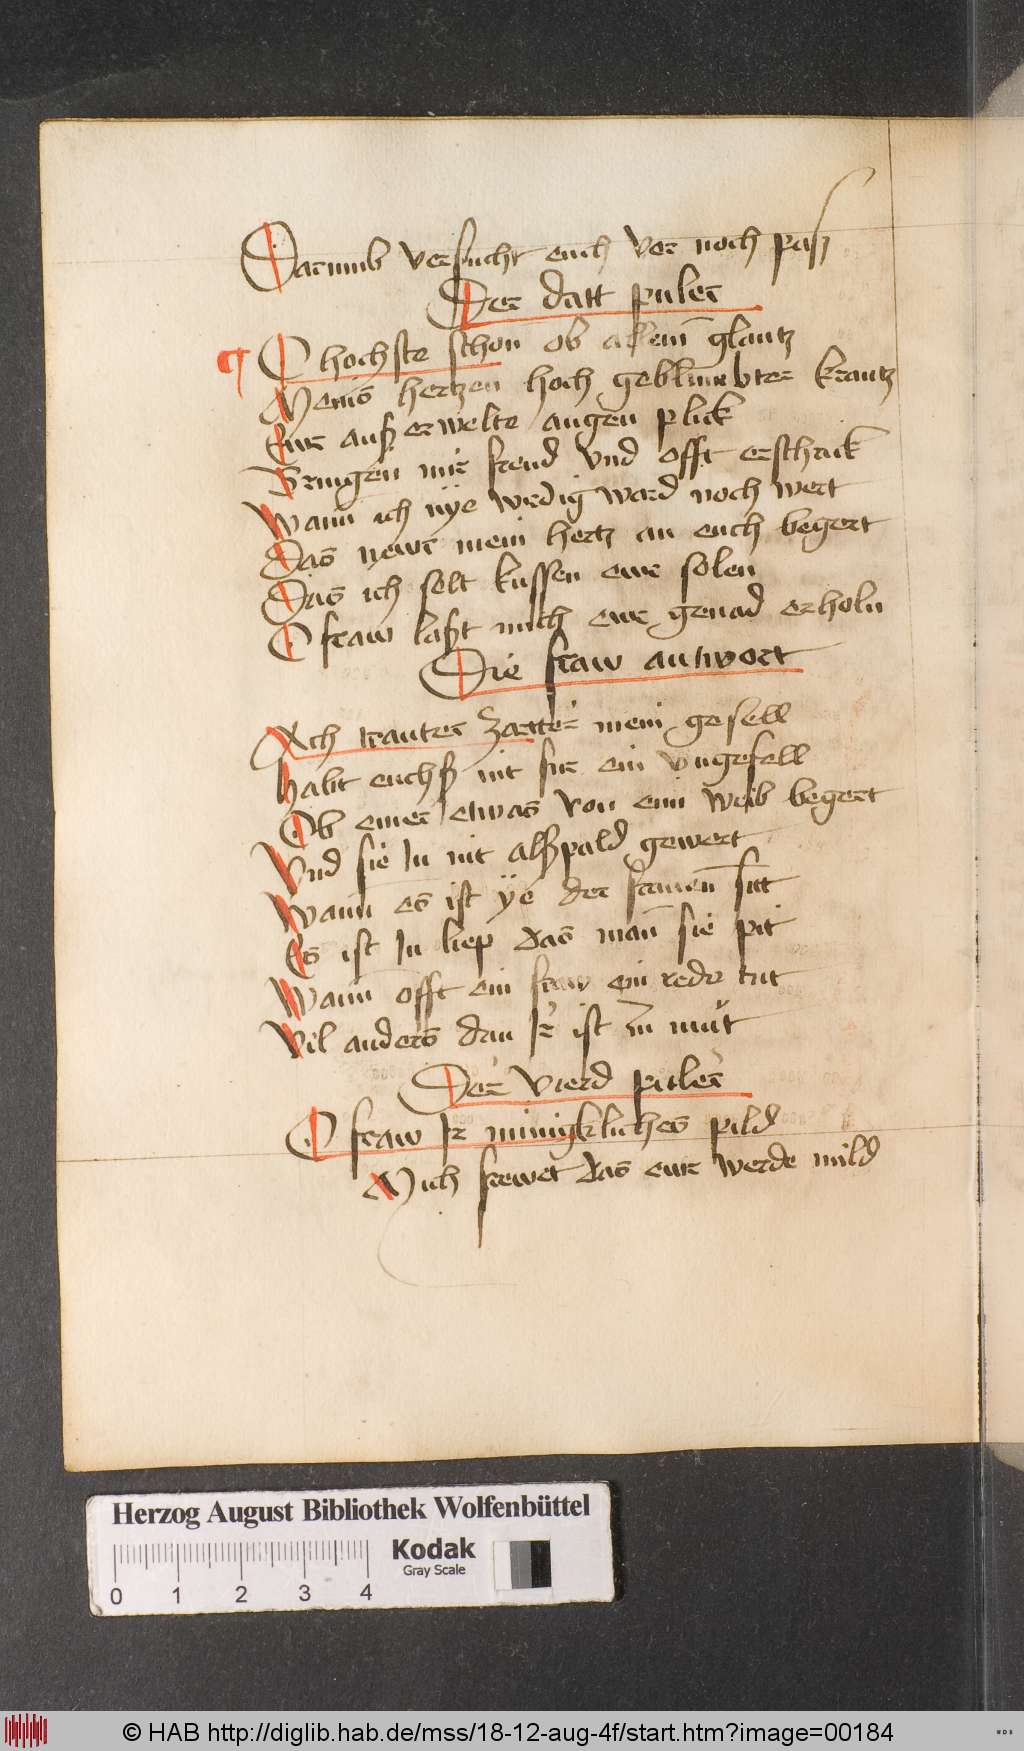 Darumb versucht euch vor noch paß
Der datt puler
O hochste schon ob allem glantz
Meins hertzen hoch geblumbter krantz
Ewr außerwelte augen plick
Bringen mir freud vnd offt erschrick
Wann ich nye wirdig ward noch wert
Das newr mein hertz an euch begert
Das ich solt kussen ewr solen
O fraw laßt mich ewr genad erholn
Die fraw antwort
Ach trauter zartter mein gesell
habt euchß nit fur ein vngefell
Ob einer etwas von eim weib begert
Vnd sie In nit alßpald gewert
Wann es ist ye der frauen sitt
Es ist In liep das man sie pit
Wann offt ein fraw ein rede tut
Vil anders dan Ir ist zu mut
Der vierd puler
O fraw Ir minigkliches pild
Mich frewet das ewr werde mild
Herzog August Bibliothek Wolfenbüttel
Kodak
Gray Scale
0 1 2 3 4
© HAB http://diglib.hab.de/mss/18-12-aug-4f/start.htm?image=00184